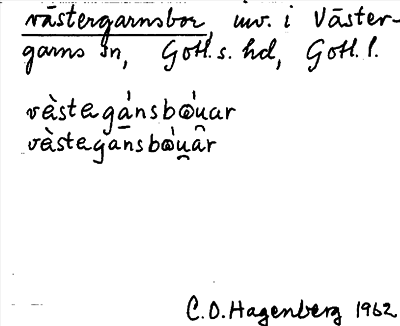 västergarnsbor, inv. i Väster-
garns sn, Gotl. s. hd, Gotl. l.
vàstagánsbǫ̀u̯ar
vàstagánsbǫ̀u̯ar
C.O. Hagenberg 1962